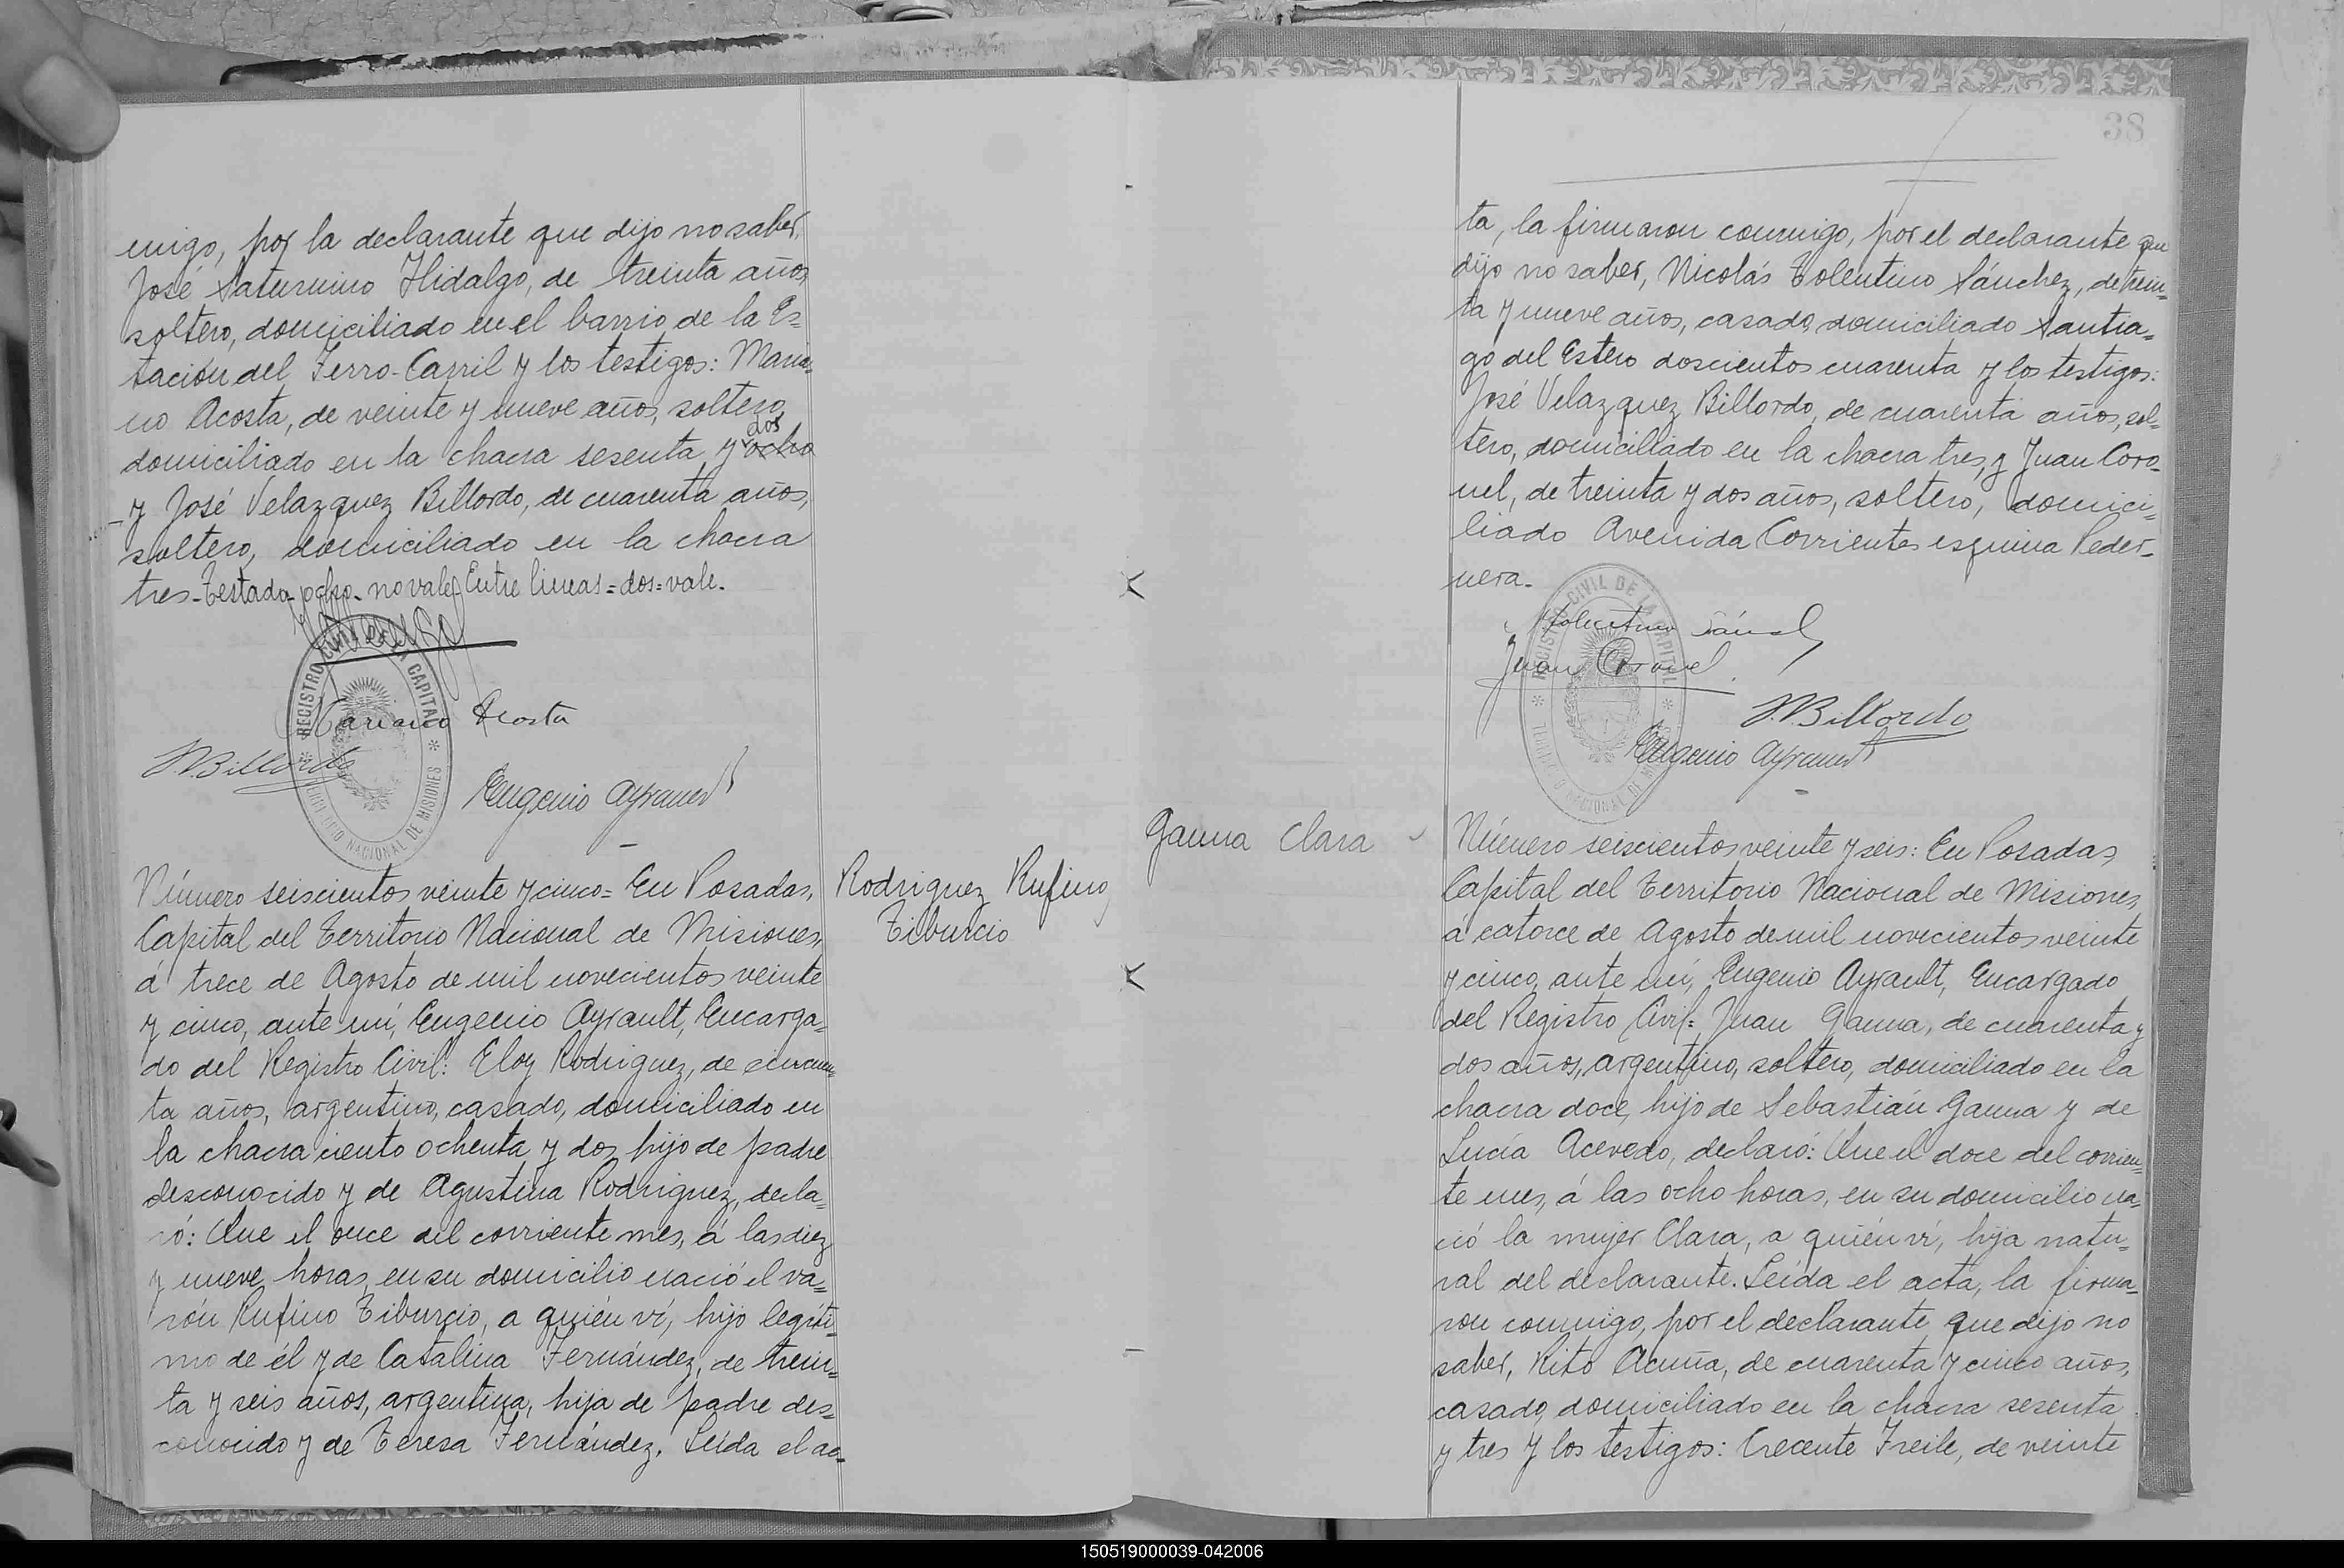 migo, por la declarante que dijo no saber,
José Saturnino Hidalgo, de treinta años,
soltero, domiciliado en el barrio de la Es=
tación del Ferro-Carril y los testigos: Maria=
no Acosta, de veinte y nueve años, soltero,
dos
domiciliado en la chacra sesenta y ocho
- y José Velazquez Billordo, de cuarenta años,
soltero, domiciliado en la chacra
tres - Testado - ocho - no vale - Entre lineas = dos = vale.
REGISTRO CIVIL DE LA CAPITAL
TERRITORIO NACIONAL DE MISIONES
Mariano Acosta
JVBillordo
Eugenio Ayrault
Número seiscientos veinte y cinco = En Posadas,
Capital del Territorio Nacional de Misiones,
á trece de Agosto de mil novecientos veinte
y cinco, ante mí, Eugenio Ayrault, Encarga=
do del Registro Civil: Eloy Rodriguez, de cincuen=
ta años, argentino, casado, domiciliado en
la chacra ciento ochenta y dos, hijo de padre
desconocido y de Agustina Rodriguez, decla=
ró: Que el once del corriente mes, á las diez
y nueve horas, en su domicilio nació el va=
rón Rufino Tiburcio, a quién ví, hijo legíti=
mo de él y de Catalina Fernández, de trein=
ta y seis años, argentina, hija de padre des=
conocido y de Teresa Fernández. Leída el ac=
Rodriguez Rufino
Tiburcio
38
ta, la firmaron conmigo, por el declarante que
dijo no saber, Nicolás Tolentino Sánchez, de trein=
ta y nueve años, casado, domiciliado Santia=
go del Estero doscientos cuarenta y los testigos:
José Velazquez Billordo, de cuarenta años, sol=
tero, domiciliado en la chacra tres, y Juan Coro=
nel, de treinta y dos años, soltero, domici=
liado Avenida Corrientes esquina Peder=
nera.
REGISTRO CIVIL DE LA CAPITAL
TERRITORIO NACIONAL DE MISIONES
Tolentino
Juan Coronel
JVBillordo
Eugenio Ayrault
Gauna Clara
Número seiscientos veinte y seis: En Posadas,
Capital del Territorio Nacional de Misiones,
á catorce de Agosto de mil novecientos veinte
y cinco, ante mí, Eugenio Ayrault, Encargado
del Registro Civil: Juan Gauna, de cuarenta y
dos años, argentino, soltero, domiciliado en la
chacra doce, hijo de Sebastián Gauna y de
Lucía Acevedo, declaró: Que el doce del corrien=
te mes, á las ocho horas, en su domicilio na=
ció la mujer Clara, a quién ví, hija natu=
ral del declarante. Leída el acta, la firma=
ron conmigo, por el declarante que dijo no
saber, Rito Acuña, de cuarenta y cinco años,
casado, domiciliado en la chacra sesenta
y tres y los testigos: Crecente Freile, de veinte
150519000039-042006